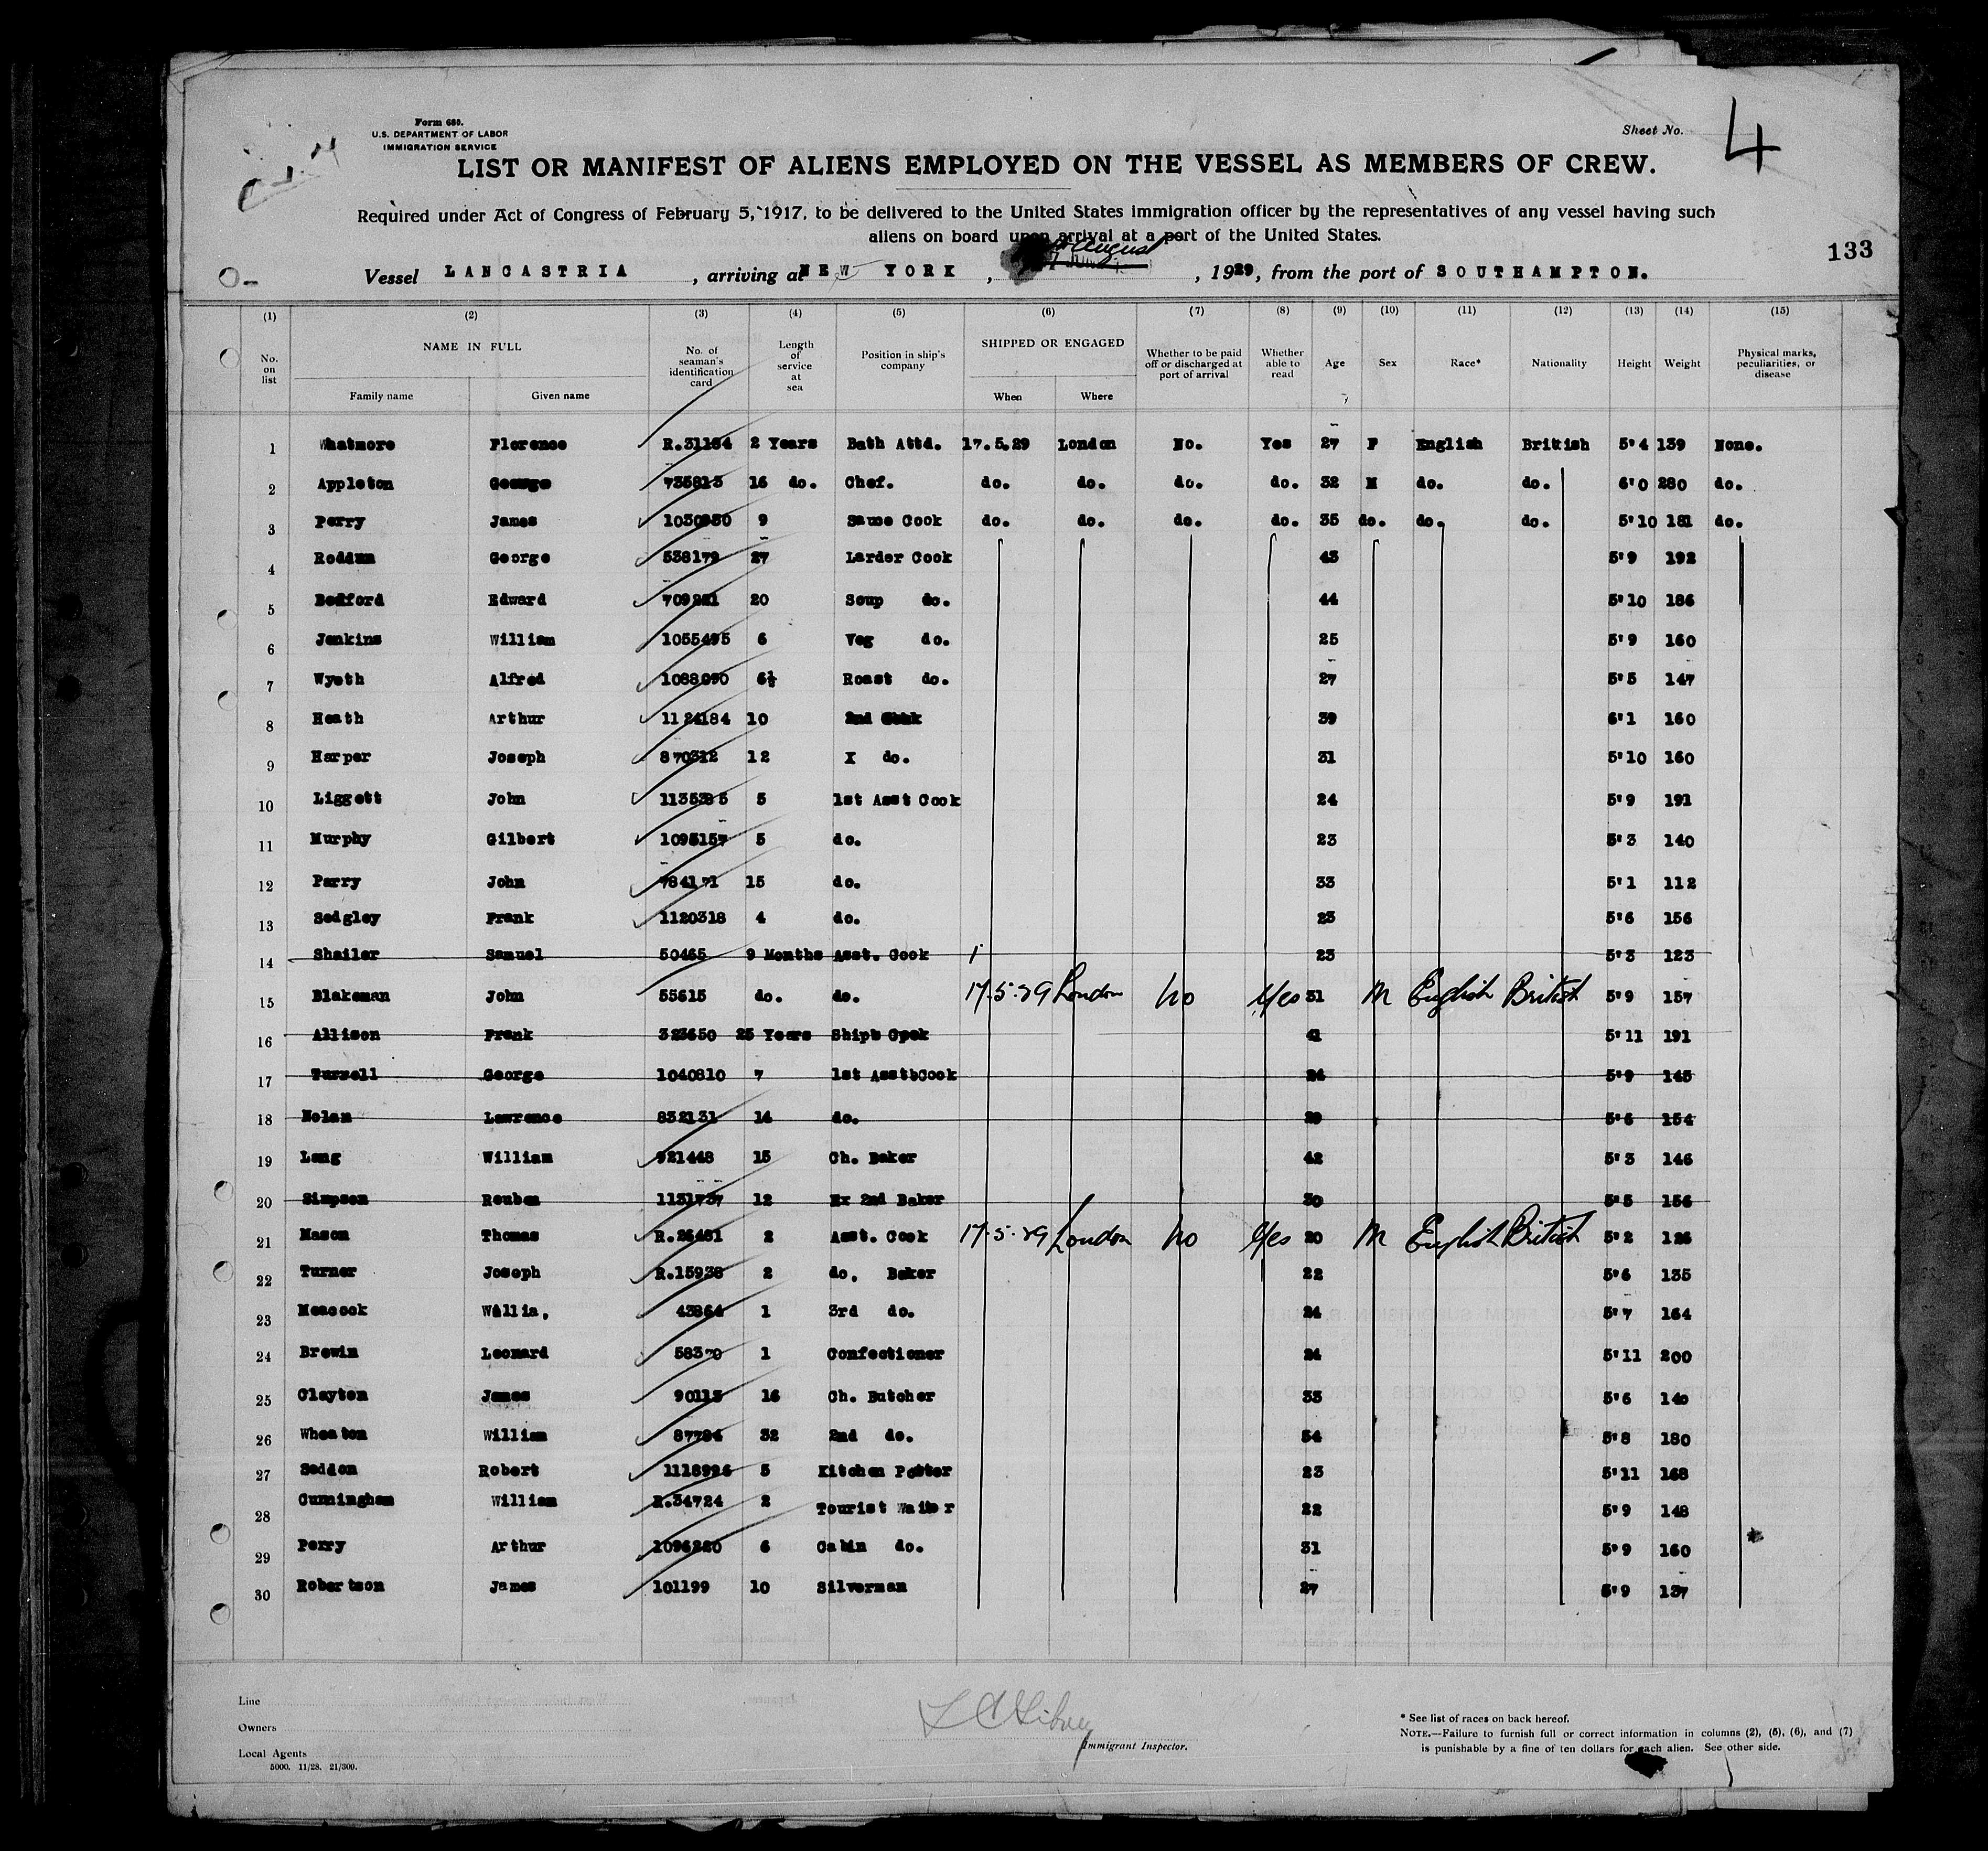 Form 680.
U.S. DEPARTMENT OF LABOR
IMMIGRATION SERVICE
Sheet No. 4
LIST OR MANIFEST OF ALIENS EMPLOYED ON THE VESSEL AS MEMBERS OF CREW.
Required under Act of Congress of February 5, 1917, to be delivered to the United States immigration officer by the representatives of any vessel having such
aliens on board upon arrival at a port of the United States.
133
August
Vessel LANCASTRIA, arriving at NEW YORK, , 1929, from the port of SOUTHAMPTON.
(1) (2) (3) (4) (5) (6) (7) (8) (9) (10) (11) (12) (13) (14) (15)
No. on list NAME IN FULL No. of seaman's identification card Length of service at sea Position in ship's company SHIPPED OR ENGAGED Whether to be paid off or discharged at port of arrival Whether able to read Age Sex Race* Nationality Height Weight Physical marks, peculiarities, or disease
Family name Given name When Where
1 Whatmore Florence R.31164 2 Years Bath Attd. 17.5.29 London No. Yes 27 F English British 5'4 139 None.
2 Appleton George 735813 16 do. Chef. do. do. do. do. 32 M do. do. 6'0 280 do.
3 Perry James 1030930 9 Sauce Cook do. do. do. do. 35 do. do. do. 5'10 181 do.
4 Roddan George 538179 27 Larder Cook 43 5'9 192
5 Bedford Edward 709221 20 Soup do. 44 5'10 186
6 Jenkins William 1055495 6 Veg do. 25 5'9 160
7 Wyeth Alfred 1088090 6½ Roast do. 27 5'5 147
8 Heath Arthur 1124184 10 2nd Cook 39 6'1 160
9 Harper Joseph 870312 12 X do. 31 5'10 160
10 Liggett John 1135385 5 1st Asst Cook 24 5'9 191
11 Murphy Gilbert 1095157 5 do. 23 5'3 140
12 Parry John 784171 15 do. 33 5'1 112
13 Sedgley Frank 1120318 4 do. 23 5'6 156
14 Shailer Samuel 50465 9 Months Asst. Cook 23 5'3 123
15 Blakeman John 55615 do. do. 17.5.29 London No Yes 31 M English British 5'9 157
16 Allison Frank 323650 25 Years Ships Cook 41 5'11 191
17 Turnell George 1040810 7 1st Asst Cook 24 5'9 145
18 Nolan Lawrence 832131 14 do. 29 5'6 154
19 Lang William 921448 15 Ch. Baker 42 5'3 146
20 Simpson Reuben 1131737 12 Ex 2nd Baker 30 5'5 156
21 Mason Thomas R.26451 2 Asst. Cook 17.5.29 London No Yes 20 M English British 5'2 126
22 Turner Joseph R.15938 2 do. Baker 22 5'6 135
23 Meacock Willia. 43864 1 3rd do. 24 5'7 164
24 Brewin Leonard 58370 1 Confectioner 24 5'11 200
25 Clayton James 90115 16 Ch. Butcher 33 5'6 140
26 Wheaton William 87794 32 2nd do. 54 5'8 180
27 Seddon Robert 1118996 5 Kitchen Porter 23 5'11 168
28 Cunningham William R.34724 2 Tourist Waiter 22 5'9 148
29 Perry Arthur 1096220 6 Cabin do. 31 5'9 160
30 Robertson James 101199 10 Silverman 27 5'9 137
Line
Owners
Local Agents
5000. 11/28. 21/309.
Immigrant Inspector.
* See list of races on back hereof.
NOTE.—Failure to furnish full or correct information in columns (2), (5), (6), and (7)
is punishable by a fine of ten dollars for each alien. See other side.